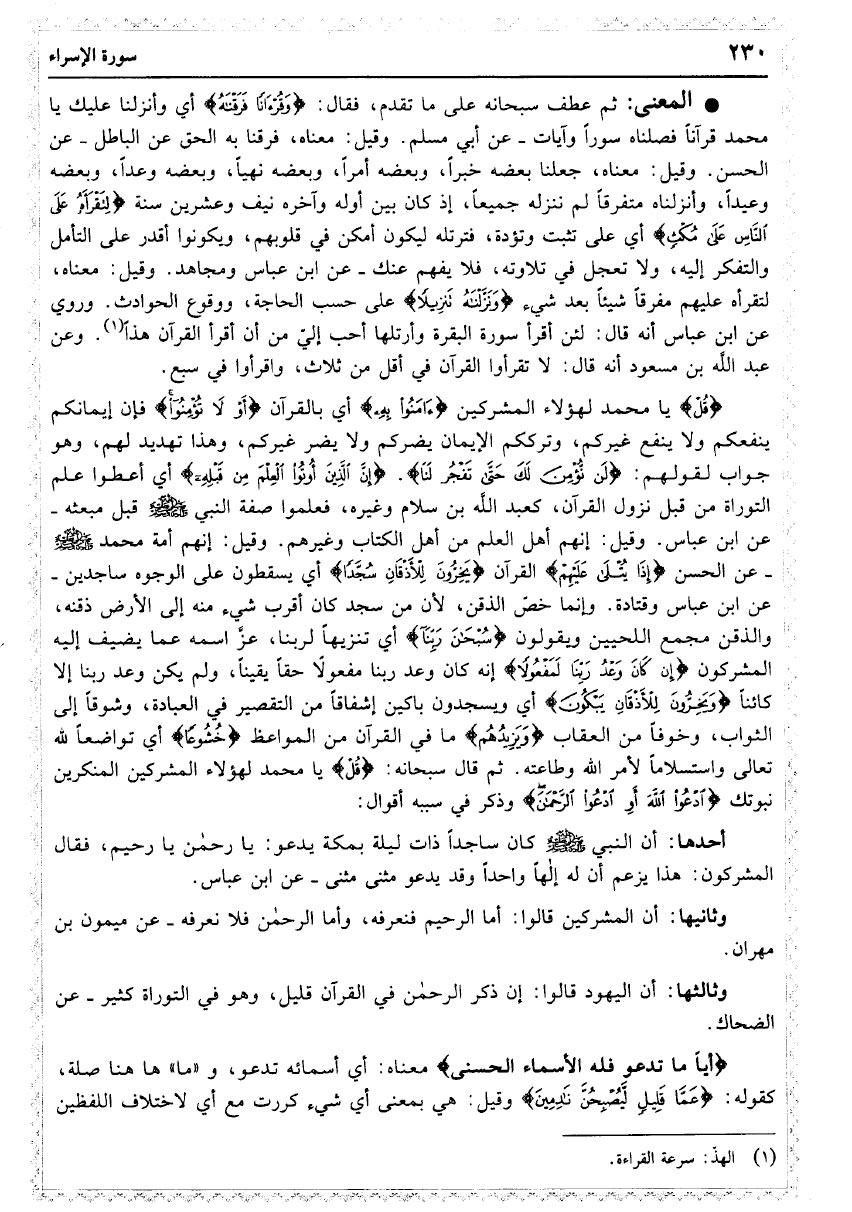 ٢٣٠
سورة الإسراء
● المعنى: ثم عطف سبحانه على ما تقدم، فقال: ﴿وَقُرْءَانًا فَرَقْنَٰهُ﴾ أي وأنزلنا عليك يا
محمد قرآناً فصلناه سوراً وآيات ـ عن أبي مسلم. وقيل: معناه، فرقنا به الحق عن الباطل ـ عن
الحسن. وقيل: معناه، جعلنا بعضه خبراً، وبعضه أمراً، وبعضه نهياً، وبعضه وعداً، وبعضه
وعيداً، وأنزلناه متفرقاً لم ننزله جميعاً، إذ كان بين أوله وآخره نيف وعشرين سنة ﴿لِتَقْرَأَهُۥ عَلَى
ٱلنَّاسِ عَلَىٰ مُكْثٍ﴾ أي على تثبت وتؤدة، فترتله ليكون أمكن في قلوبهم، ويكونوا أقدر على التأمل
والتفكر إليه، ولا تعجل في تلاوته، فلا يفهم عنك ـ عن ابن عباس ومجاهد. وقيل: معناه،
لتقرأه عليهم مفرقاً شيئاً بعد شيء ﴿وَنَزَّلْنَٰهُ تَنزِيلًا﴾ على حسب الحاجة، ووقوع الحوادث. وروي
عن ابن عباس أنه قال: لئن أقرأ سورة البقرة وأرتلها أحب إليّ من أن أقرأ القرآن هذاً(١). وعن
عبد اللَّه بن مسعود أنه قال: لا تقرأوا القرآن في أقل من ثلاث، واقرأوا في سبع.
﴿قُلْ﴾ يا محمد لهؤلاء المشركين ﴿ءَامِنُوا۟ بِهِۦٓ﴾ أي بالقرآن ﴿أَوْ لَا تُؤْمِنُوٓا۟ۚ﴾ فإن إيمانكم
ينفعكم ولا ينفع غيركم، وترككم الإيمان يضركم ولا يضر غيركم، وهذا تهديد لهم، وهو
جواب لقولهم: ﴿لَن نُّؤْمِنَ لَكَ حَتَّىٰ تَفْجُرَ لَنَا﴾. ﴿إِنَّ ٱلَّذِينَ أُوتُوا۟ ٱلْعِلْمَ مِن قَبْلِهِۦٓ﴾ أي أعطوا علم
التوراة من قبل نزول القرآن، كعبد اللَّه بن سلام وغيره، فعلموا صفة النبي ﷺ قبل مبعثه ـ
عن ابن عباس. وقيل: إنهم أهل العلم من أهل الكتاب وغيرهم. وقيل: إنهم أمة محمد ﷺ
ـ عن الحسن ﴿إِذَا يُتْلَىٰ عَلَيْهِمْ﴾ القرآن ﴿يَخِرُّونَ لِلْأَذْقَانِ سُجَّدًا﴾ أي يسقطون على الوجوه ساجدين ـ
عن ابن عباس وقتادة. وإنما خصّ الذقن، لأن من سجد كان أقرب شيء منه إلى الأرض ذقنه،
والذقن مجمع اللحيين ويقولون ﴿سُبْحَٰنَ رَبِّنَآ﴾ أي تنزيهاً لربنا، عزَّ اسمه عما يضيف إليه
المشركون ﴿إِن كَانَ وَعْدُ رَبِّنَا لَمَفْعُولًا﴾ إنه كان وعد ربنا مفعولًا حقاً يقيناً، ولم يكن وعد ربنا إلا
كائناً ﴿وَيَخِرُّونَ لِلْأَذْقَانِ يَبْكُونَ﴾ أي ويسجدون باكين إشفاقاً من التقصير في العبادة، وشوقاً إلى
الثواب، وخوفاً من العقاب ﴿وَيَزِيدُهُمْ﴾ ما في القرآن من المواعظ ﴿خُشُوعًا﴾ أي تواضعاً لله
تعالى واستسلاماً لأمر الله وطاعته. ثم قال سبحانه: ﴿قُلْ﴾ يا محمد لهؤلاء المشركين المنكرين
نبوتك ﴿ٱدْعُوا۟ ٱللَّهَ أَوِ ٱدْعُوا۟ ٱلرَّحْمَٰنَۖ﴾ وذكر في سببه أقوال:
أحدها: أن النبي ﷺ كان ساجداً ذات ليلة بمكة يدعو: يا رحمٰن يا رحيم، فقال
المشركون: هذا يزعم أن له إلٰهاً واحداً وقد يدعو مثنى مثنى ـ عن ابن عباس.
وثانيها: أن المشركين قالوا: أما الرحيم فنعرفه، وأما الرحمٰن فلا نعرفه ـ عن ميمون بن
مهران.
وثالثها: أن اليهود قالوا: إن ذكر الرحمٰن في القرآن قليل، وهو في التوراة كثير ـ عن
الضحاك.
﴿أياً ما تدعو فله الأسماء الحسنى﴾ معناه: أي أسمائه تدعو، و «ما» ها هنا صلة،
كقوله: ﴿عَمَّا قَلِيلٍ لَّيُصْبِحُنَّ نَٰدِمِينَ﴾ وقيل: هي بمعنى أي شيء كررت مع أي لاختلاف اللفظين
(١) الهذّ: سرعة القراءة.